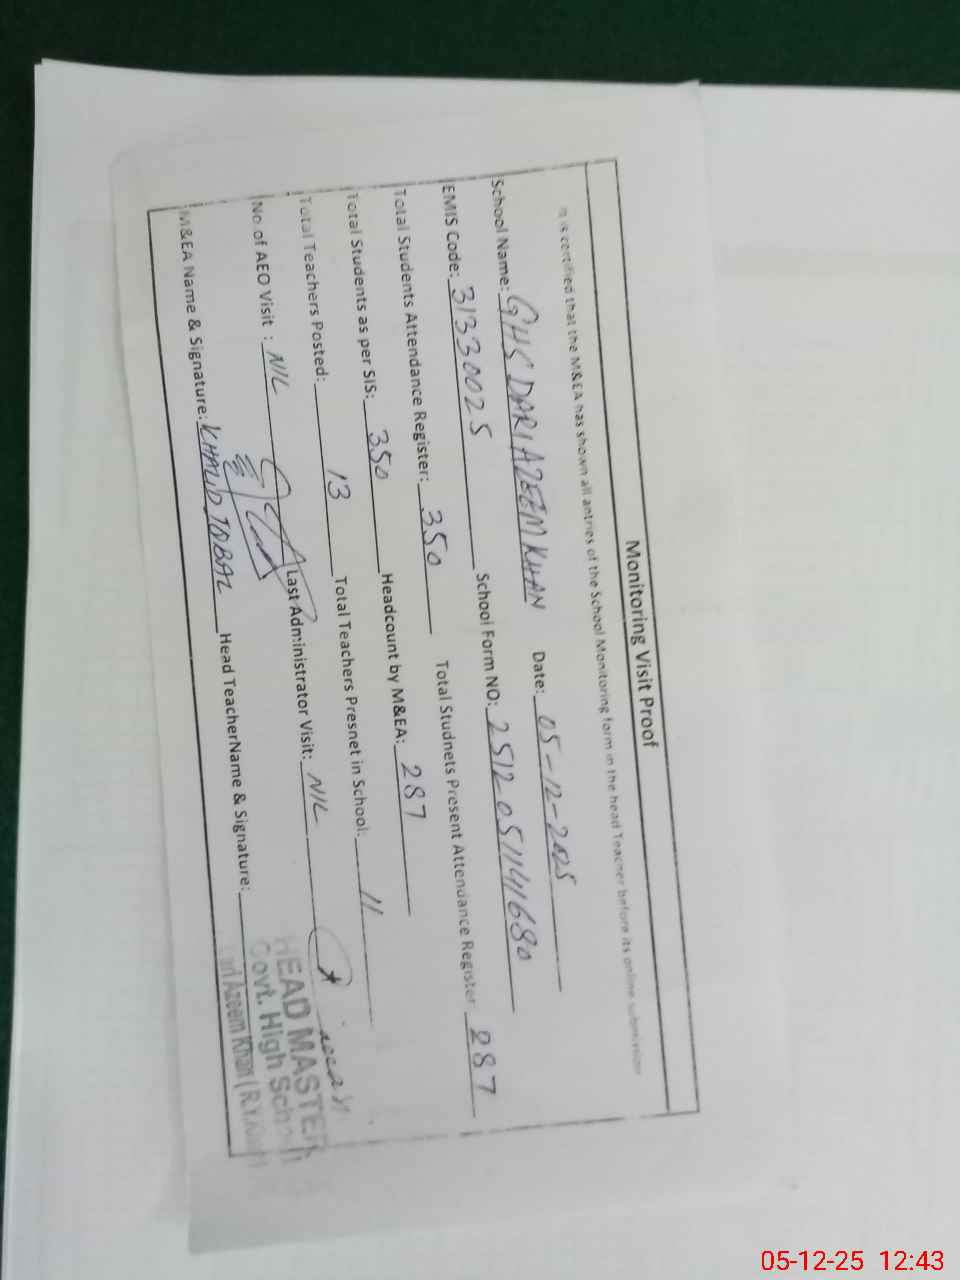 Monitoring Visit Proof
It is certified that the M&EA has shown all entries of the School Monitoring form in the head Teacher before its online submission
School Name: GHS DARI AZEEM KHAN Date: 05-12-2025
EMIS Code: 31330025 School Form NO: 2512051141680
Total Students Attendance Register: 350 Total Studnets Present Attendance Register 287
Total Students as per SIS: 350 Headcount by M&EA: 287
Total Teachers Posted: 13 Total Teachers Presnet in School: 11
No of AEO Visit : NIL Last Administrator Visit: NIL
M&EA Name & Signature: KHALID IQBAL Head TeacherName & Signature:
HEAD MASTER
Govt. High School
Dari Azeem Khan (R.Y.Khan)
05-12-25 12:43